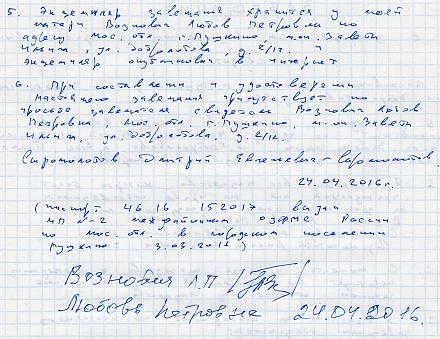 5. Экземпляр завещания хранится у моей
матери Вознович Любовь Петровны по
адресу мос. отл. г. Пушкино, м-он. Завети
Ильича, ул. Добролюбова, д. 2/12. и
экземпляр опубликован в интернет
6. При составлении и удостоверении
настоящего завещания присутствует по
просьбе завещателя свидетель Вознович Любовь
Петровна, мос. отл. г. Пушкино, м-он. Завети
Ильича, ул. Добролюбова. д. 2/12.
Сыромолотов Дмитрий Евгеньевич
24.04.2016г.
(паспорт 46 16 152017 выдан
МП №2 межрайонный ОУФМС России
по мос. отл. в городском поселении
Пушкино 3.03.2011)
Л.П
Любовь Петровна 24.04.2016.